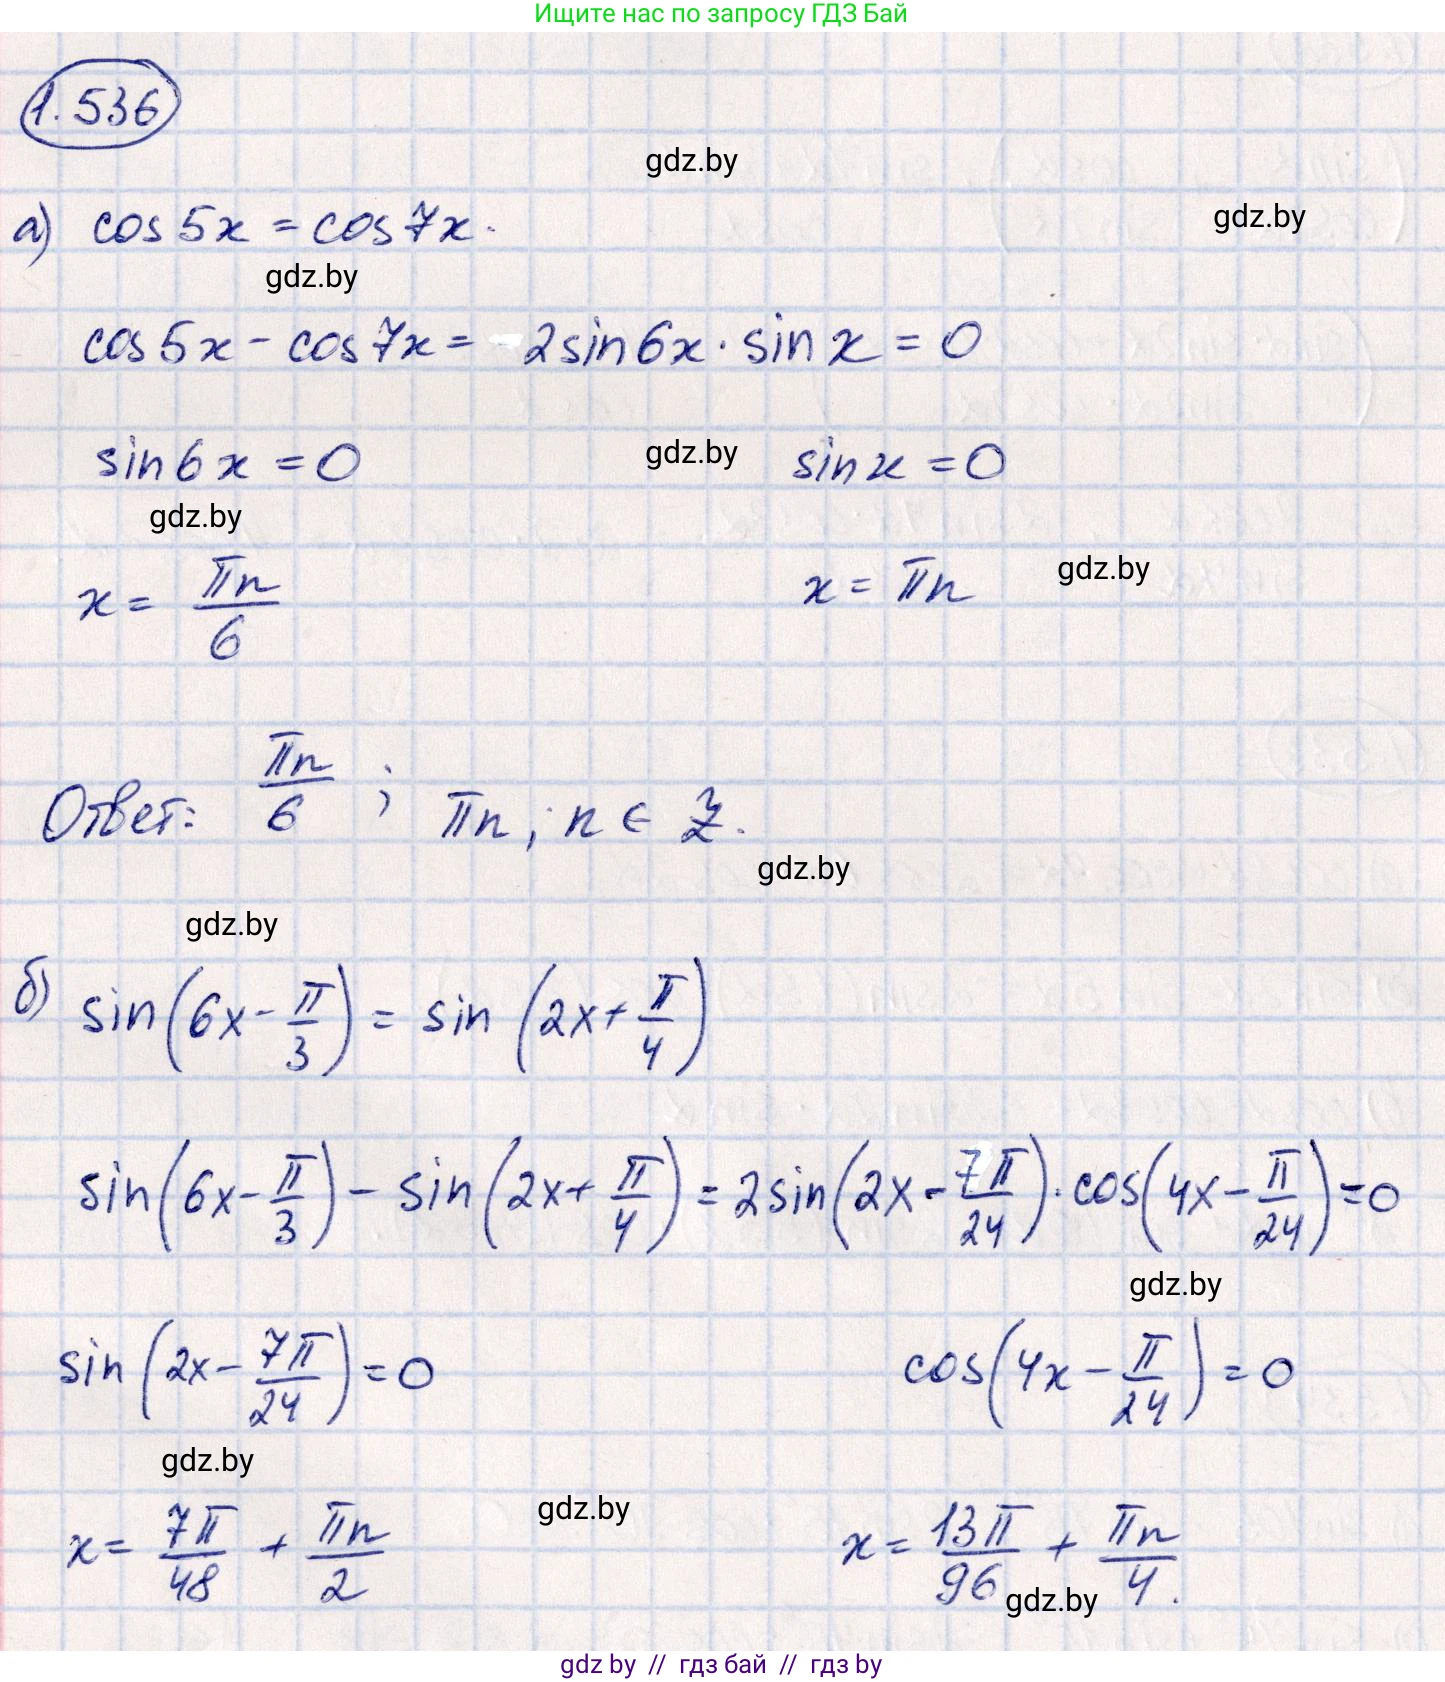 Ищите нас по запросу ГДЗ Бай
1.536
gdz.by
а) cos 5x = cos 7x.
gdz.by
gdz.by
cos 5x - cos 7x = - 2 sin 6x · sin x = 0
sin 6x = 0 gdz.by sin x = 0
gdz.by
x = πn/6 x = πn gdz.by
Ответ: πn/6 ; πn ; n ∈ Z.
gdz.by
gdz.by
б) sin(6x - π/3) = sin (2x + π/4)
sin(6x - π/3) - sin(2x + π/4) = 2sin(2x - 7π/24) · cos(4x - π/24) = 0
gdz.by
sin (2x - 7π/24) = 0 cos(4x - π/24) = 0
gdz.by
gdz.by
x = 7π/48 + πn/2 x = 13π/96 + πn/4.
gdz.by
gdz by // гдз бай // гдз by